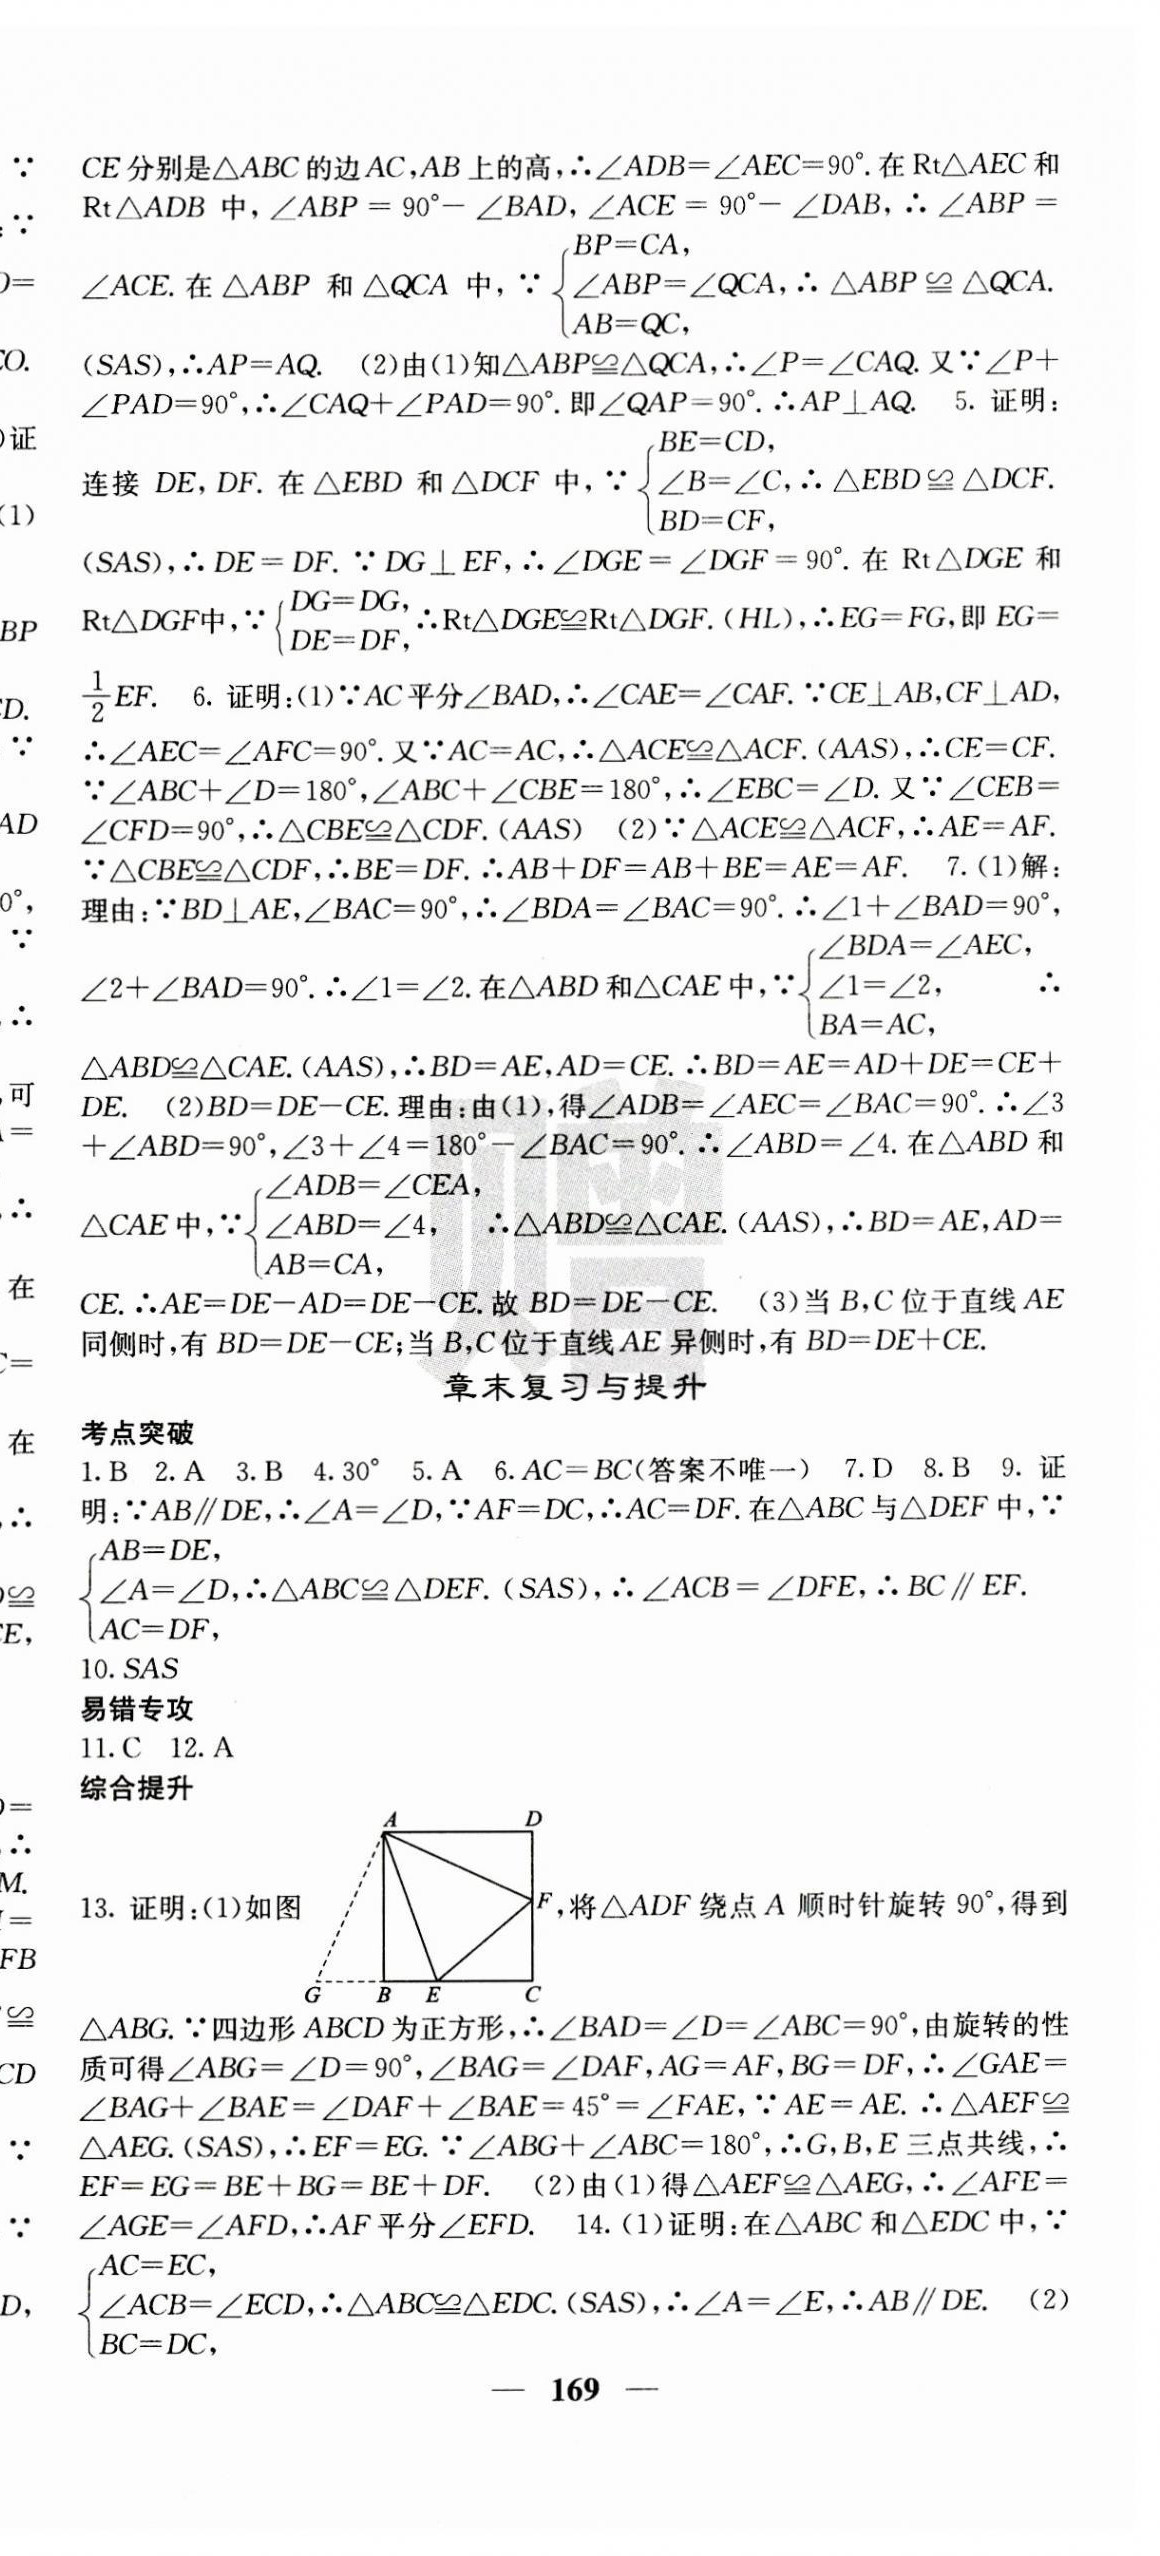 CE分别是△ABC的边AC,AB上的高,∴∠ADB=∠AEC=90°.在Rt△AEC和
Rt△ADB 中,∠ABP = 90°- ∠BAD, ∠ACE = 90°- ∠DAB, ∴ ∠ABP =
BP=CA,
∠ACE. 在 △ABP 和 △QCA 中, ∵ ∠ABP=∠QCA, ∴ △ABP ≌ △QCA.
AB=QC,
(SAS),∴AP=AQ. (2)由(1)知△ABP≌△QCA,∴∠P=∠CAQ.又∵∠P+
∠PAD=90°,∴∠CAQ+∠PAD=90°.即∠QAP=90°.∴AP⊥AQ. 5. 证明:
BE=CD,
连接 DE, DF. 在 △EBD 和 △DCF 中, ∵ ∠B=∠C, ∴ △EBD≌△DCF.
BD=CF,
(SAS),∴ DE = DF. ∵ DG⊥EF, ∴ ∠DGE = ∠DGF = 90°. 在 Rt△DGE 和
DG=DG,
Rt△DGF中,∵ ∴Rt△DGE≌Rt△DGF.(HL),∴EG=FG,即EG=
DE=DF,
1/2 EF. 6. 证明:(1)∵AC平分∠BAD,∴∠CAE=∠CAF.∵CE⊥AB,CF⊥AD,
∴∠AEC=∠AFC=90°.又∵AC=AC,∴△ACE≌△ACF.(AAS),∴CE=CF.
∵∠ABC+∠D=180°,∠ABC+∠CBE=180°,∴∠EBC=∠D.又∵∠CEB=
∠CFD=90°,∴△CBE≌△CDF.(AAS) (2)∵△ACE≌△ACF,∴AE=AF.
∵△CBE≌△CDF,∴BE=DF.∴AB+DF=AB+BE=AE=AF. 7.(1)解:
理由:∵BD⊥AE,∠BAC=90°,∴∠BDA=∠BAC=90°.∴∠1+∠BAD=90°,
∠BDA=∠AEC,
∠2+∠BAD=90°.∴∠1=∠2.在△ABD和△CAE中,∵ ∠1=∠2, ∴
BA=AC,
△ABD≌△CAE.(AAS),∴BD=AE,AD=CE.∴BD=AE=AD+DE=CE+
DE. (2)BD=DE-CE.理由:由(1),得∠ADB=∠AEC=∠BAC=90°.∴∠3
+∠ABD=90°,∠3+∠4=180°-∠BAC=90°.∴∠ABD=∠4.在△ABD和
∠ADB=∠CEA,
△CAE中,∵ ∠ABD=∠4, ∴△ABD≌△CAE.(AAS),∴BD=AE,AD=
AB=CA,
CE.∴AE=DE-AD=DE-CE.故BD=DE-CE. (3)当B,C位于直线AE
同侧时,有BD=DE-CE;当B,C位于直线AE异侧时,有BD=DE+CE.
章末复习与提升
考点突破
1.B 2.A 3.B 4.30° 5.A 6.AC=BC(答案不唯一) 7.D 8.B 9. 证
明:∵AB∥DE,∴∠A=∠D,∵AF=DC,∴AC=DF.在△ABC与△DEF中,∵
AB=DE,
∠A=∠D,∴△ABC≌△DEF.(SAS),∴∠ACB=∠DFE,∴BC∥EF.
AC=DF,
10. SAS
易错专攻
11. C 12. A
综合提升
A D
13. 证明:(1)如图 F,将△ADF绕点A顺时针旋转90°,得到
G B E C
△ABG.∵四边形ABCD为正方形,∴∠BAD=∠D=∠ABC=90°,由旋转的性
质可得∠ABG=∠D=90°,∠BAG=∠DAF,AG=AF,BG=DF,∴∠GAE=
∠BAG+∠BAE=∠DAF+∠BAE=45°=∠FAE,∵AE=AE.∴△AEF≌
△AEG.(SAS),∴EF=EG.∵∠ABG+∠ABC=180°,∴G,B,E三点共线,∴
EF=EG=BE+BG=BE+DF. (2)由(1)得△AEF≌△AEG,∴∠AFE=
∠AGE=∠AFD,∴AF平分∠EFD. 14.(1)证明:在△ABC和△EDC中,∵
AC=EC,
∠ACB=∠ECD,∴△ABC≌△EDC.(SAS),∴∠A=∠E,∴AB∥DE. (2)
BC=DC,
— 169 —